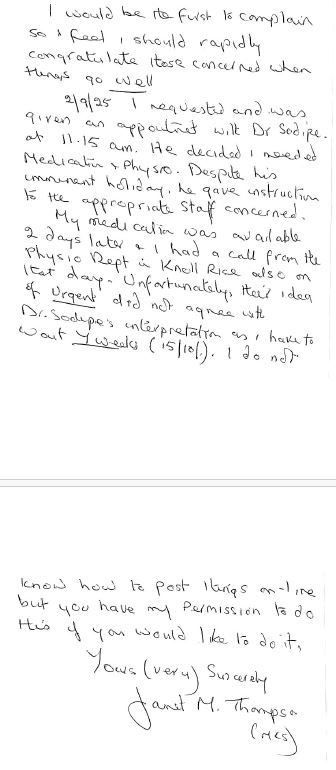 I would be the first to complain
so I feel I should rapidly
congratulate those concerned when
things go well
2/9/25 I requested and was
given an appointment with Dr Sodipe.
at 11.15 am. He decided I needed
Medication & Physio. Despite his
imminent holiday, he gave instruction
to the appropriate Staff concerned.
My medication was available
2 days later & I had a call from the
Physio Dept in Knoll Rise also on
that day. Unfortunately, their idea
of Urgent did not agree with
Dr. Sodipe's interpretation as I have to
wait weeks (15/10/). I do not
know how to post things on-line
but you have my Permission to do
this if you would like to do it,
Yours (very) Sincerely
Janet M. Thompson
(Mrs)